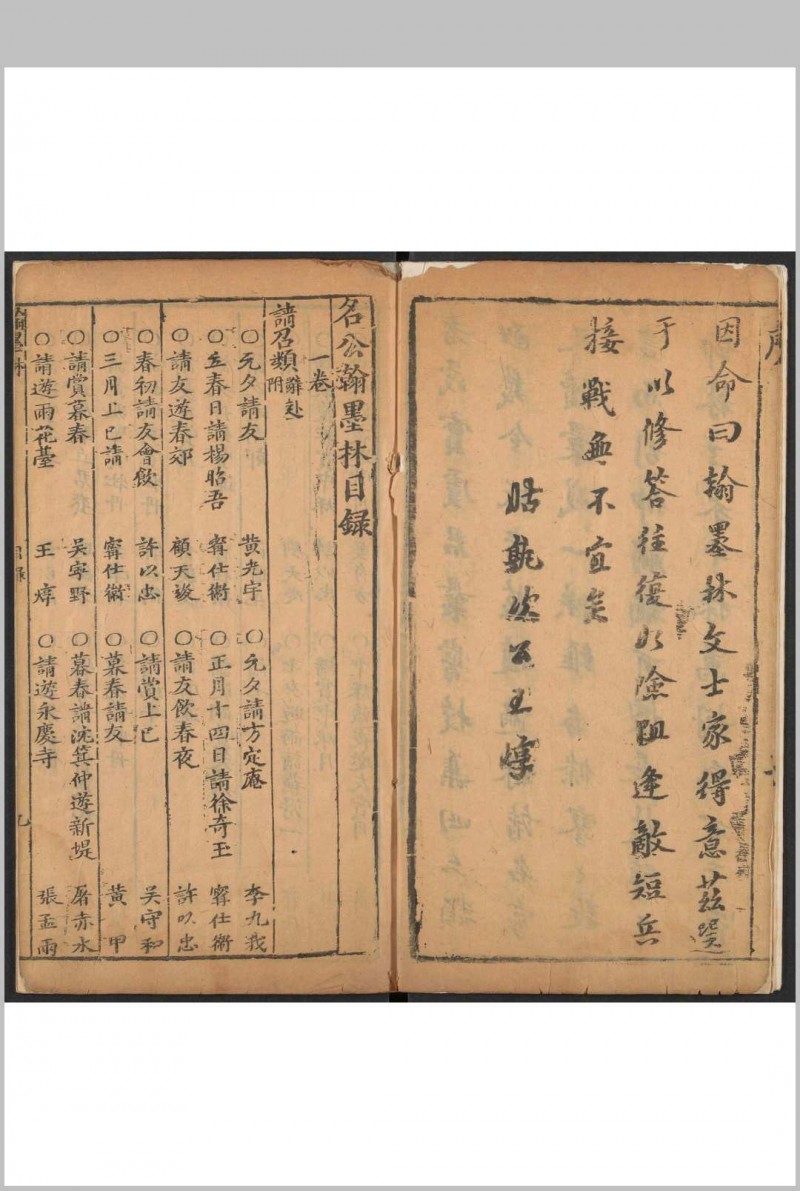 序
因命曰翰墨林文士家得意茲選
于以修答往復如險阻逢敵短兵
接戰無不宜矣
姑孰 公王
名公翰墨林目錄
一卷
請召類 辭赴附
○元夕請友 黃光宇 ○元夕請方定庵 李九我
○立春日請楊昭吾 甯仕衡 ○正月十四日請徐奇玉 甯仕衡
○請友遊春郊 顧天埈 ○請友飲春夜 許以忠
○春初請友會飲 許以忠 ○請賞上巳 吳守和
○三月上巳請 甯仕衡 ○暮春請友 黃甲
○請賞暮春 吳寧野 ○暮春請沈箕仲遊新堤 屠赤水
○請遊雨花臺 王焞 ○請遊永慶寺 張孟雨
翰墨林 目錄 九